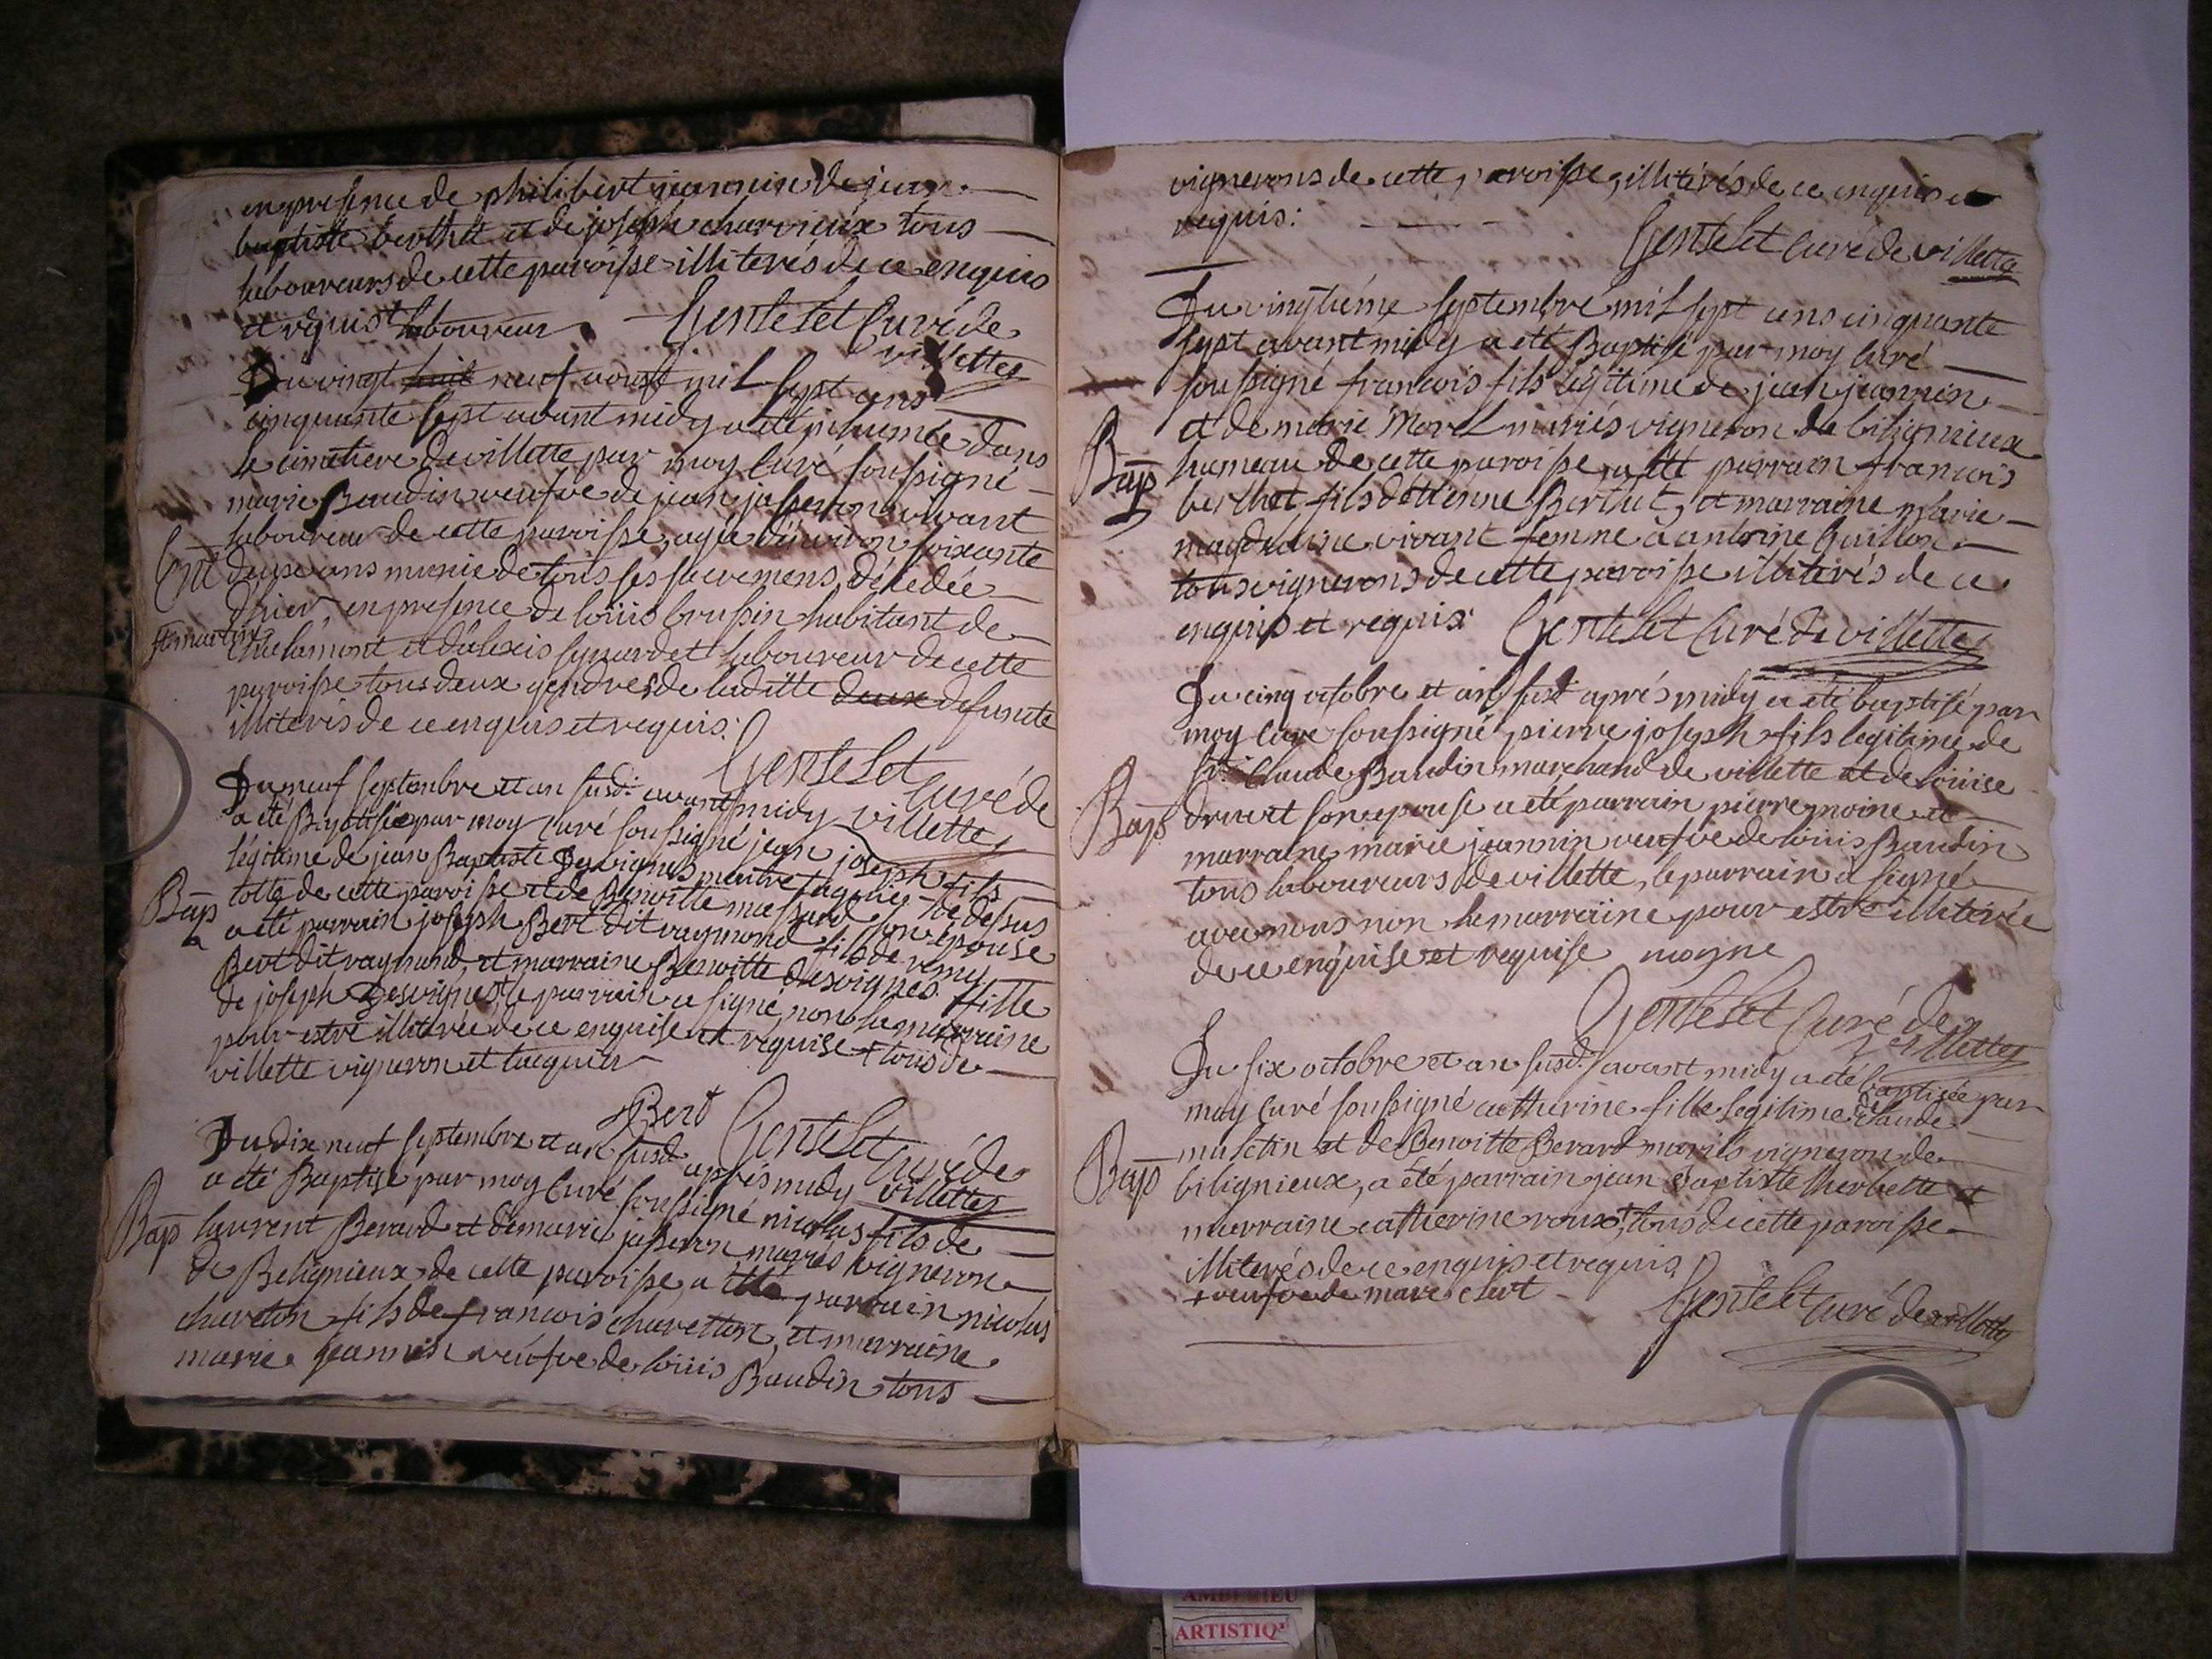 en presence de philibert jeannin de jean
baptiste berthet et de joseph charvieux tous
laboureurs de cette paroisse illiterés de ce enquis
et requis laboureur Gentelet Curé de
villettes
Du vingt huit neuf aoust mil sept cens
cinquante sept avant midy a été inhumée dans
le cimetiere de villette par moy Curé soussigné
marie Baudin veufve de jean josseron vivant
laboureur de cette paroisse, agée d'environ soixante
Ent deux ans munie de tous ses sacremens, décedée
d'hier, en presence de loüis brussin habitant de
chalamont et d'alexis synardet laboureur de cette
paroisse tous deux gendres de laditte deux defunte
illiterés de ce enquis et requis.
Gentelet Curé de
villettes
Du neuf septembre et an susd. avant midy
a été Baptisé par moy curé soussigné jean joseph fils
légitime de jean Baptiste Desvignes maitre
de cette paroisse et de Benoitte son épouse
Bap a été parrain joseph Bert dit raymond fils de remy
Bert dit raymond, et marraine Benoitte desvignes fille
de joseph Desvignes, le parrain a signé, non la marraine
pour estre illiterée de ce enquise et requise + tous de
villette vigneron et taquier
JBert Gentelet Curé de
villettes
Du dix neuf septembre et an susd. aprés midy
a été Baptisé par moy Curé soussigné nicolas fils de
Bap laurent Berard et de marie josseron mariés vigneron
de Belignieux de cette paroisse, a été parrain nicolas
chareton fils de francois charetton, et marraine
marie jeannin veufve de loüis Baudin tous
vignerons de cette paroisse, illiterés de ce enquis et
requis:
Gentelet Curé de villettes
Du vingtiéme septembre mil sept cens cinquante
sept avant midy a eté Baptisé par moy Curé
soussigné francois fils légitime de jean jeannin
et de marie Morel mariés vigneron de bilignieux
Bap hameau de cette paroisse, a été parrain francois
berthet fils d'etienne Berthet, et marraine marie
magdelaine vivant femme à antoine Guillon
tous vignerons de cette paroisse illiterés de ce
enquis et requis Gentelet Curé de villettes
Du cinq octobre et an susd. aprés midy a été baptisé par
moy Curé soussigné pierre joseph fils legitime de
Sr. Claude Baudin marchand de villette et de loüise
Bap druet son epouse a eté parrain pierre moine et
marraine marie jeannin veufve de loüis Baudin
tous laboureurs de villette, le parrain a signé
avec nous non la marraine pour estre illiterée
de ce enquise et requise moyne
Gentelet Curé de
villettes
Du six octobre et an susd. avant midy a été baptisée par
moy Curé soussigné catherine fille legitime de Claude
et de Benoitte Berard mariés vigneron de
Bap bilignieux, a été parrain jean Baptiste therbette et
marraine catherine roux +, tous de cette paroisse
illiterés de ce enquis et requis
+ veufve de marc clert
Gentelet Curé de villettes
AMBERIEU
ARTISTIQ